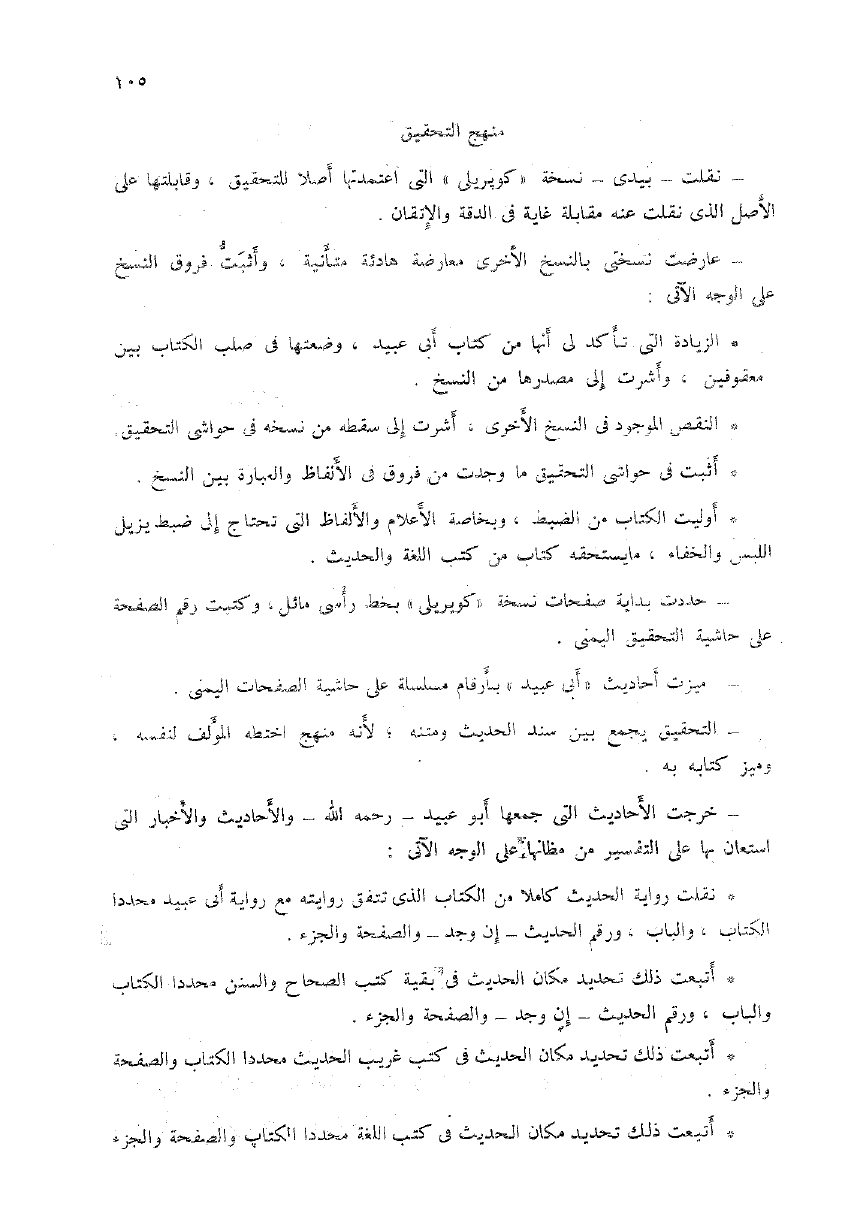 ١٠٥
منهج التحقيق
ــ نقلت ــ بيدى ــ نسخة «كوبريلى» التى اعتمدتها أصلا للتحقيق ، وقابلتها على
الأصل الذى نقلت عنه مقابلة غاية فى الدقة والإتقان .
ــ عارضت نسختى بالنسخ الأخرى معارضة هادئة متأنية ، وأثبَتُّ فروق النسخ
على الوجه الآتى :
* الزيادة التى تأكد لى أنها من كتاب أبى عبيد ، وضعتها فى صلب الكتاب بين
معقوفين ، وأشرت إلى مصدرها من النسخ .
* النقص الموجود فى النسخ الأخرى ، أشرت إلى سقطه من نسخه فى حواشى التحقيق.
* أثبت فى حواشى التحقيق ما وجدت من فروق فى الألفاظ والعبارة بين النسخ .
* أوليت الكتاب من الضبط ، وبخاصة الأعلام والألفاظ التى تحتاج إلى ضبط يزيل
اللبس والخفاء ، مايستحقه كتاب من كتب اللغة والحديث .
ــ حددت بداية صفحات نسخة «كوبريلى» بخط رأسى مائل ، وكتبت رقم الصفحة
على حاشية التحقيق اليمنى .
ــ ميزت أحاديث «أبى عبيد» بأرقام مسلسلة على حاشية الصفحات اليمنى .
ــ التحقيق يجمع بين سند الحديث ومتنه ؛ لأنه منهج اختطه المؤلف لنفسه ،
وميز كتابه به .
ــ خرجت الأحاديث التى جمعها أبو عبيد ــ رحمه الله ــ والأحاديث والأخبار التى
استعان بها على التفسير من مظانها على الوجه الآتى :
* نقلت رواية الحديث كاملا من الكتاب الذى تتفق روايته مع رواية أبى عبيد محددا
الكتاب ، والباب ، ورقم الحديث ــ إن وجد ــ والصفحة والجزء .
* أتبعت ذلك تحديد مكان الحديث فى بقية كتب الصحاح والسنن محددا الكتاب
والباب ، ورقم الحديث ــ إن وجد ــ والصفحة والجزء .
* أتبعت ذلك تحديد مكان الحديث فى كتب غريب الحديث محددا الكتاب والصفحة
والجزء .
* أتبعت ذلك تحديد مكان الحديث فى كتب اللغة محددا الكتاب والصفحة والجزء